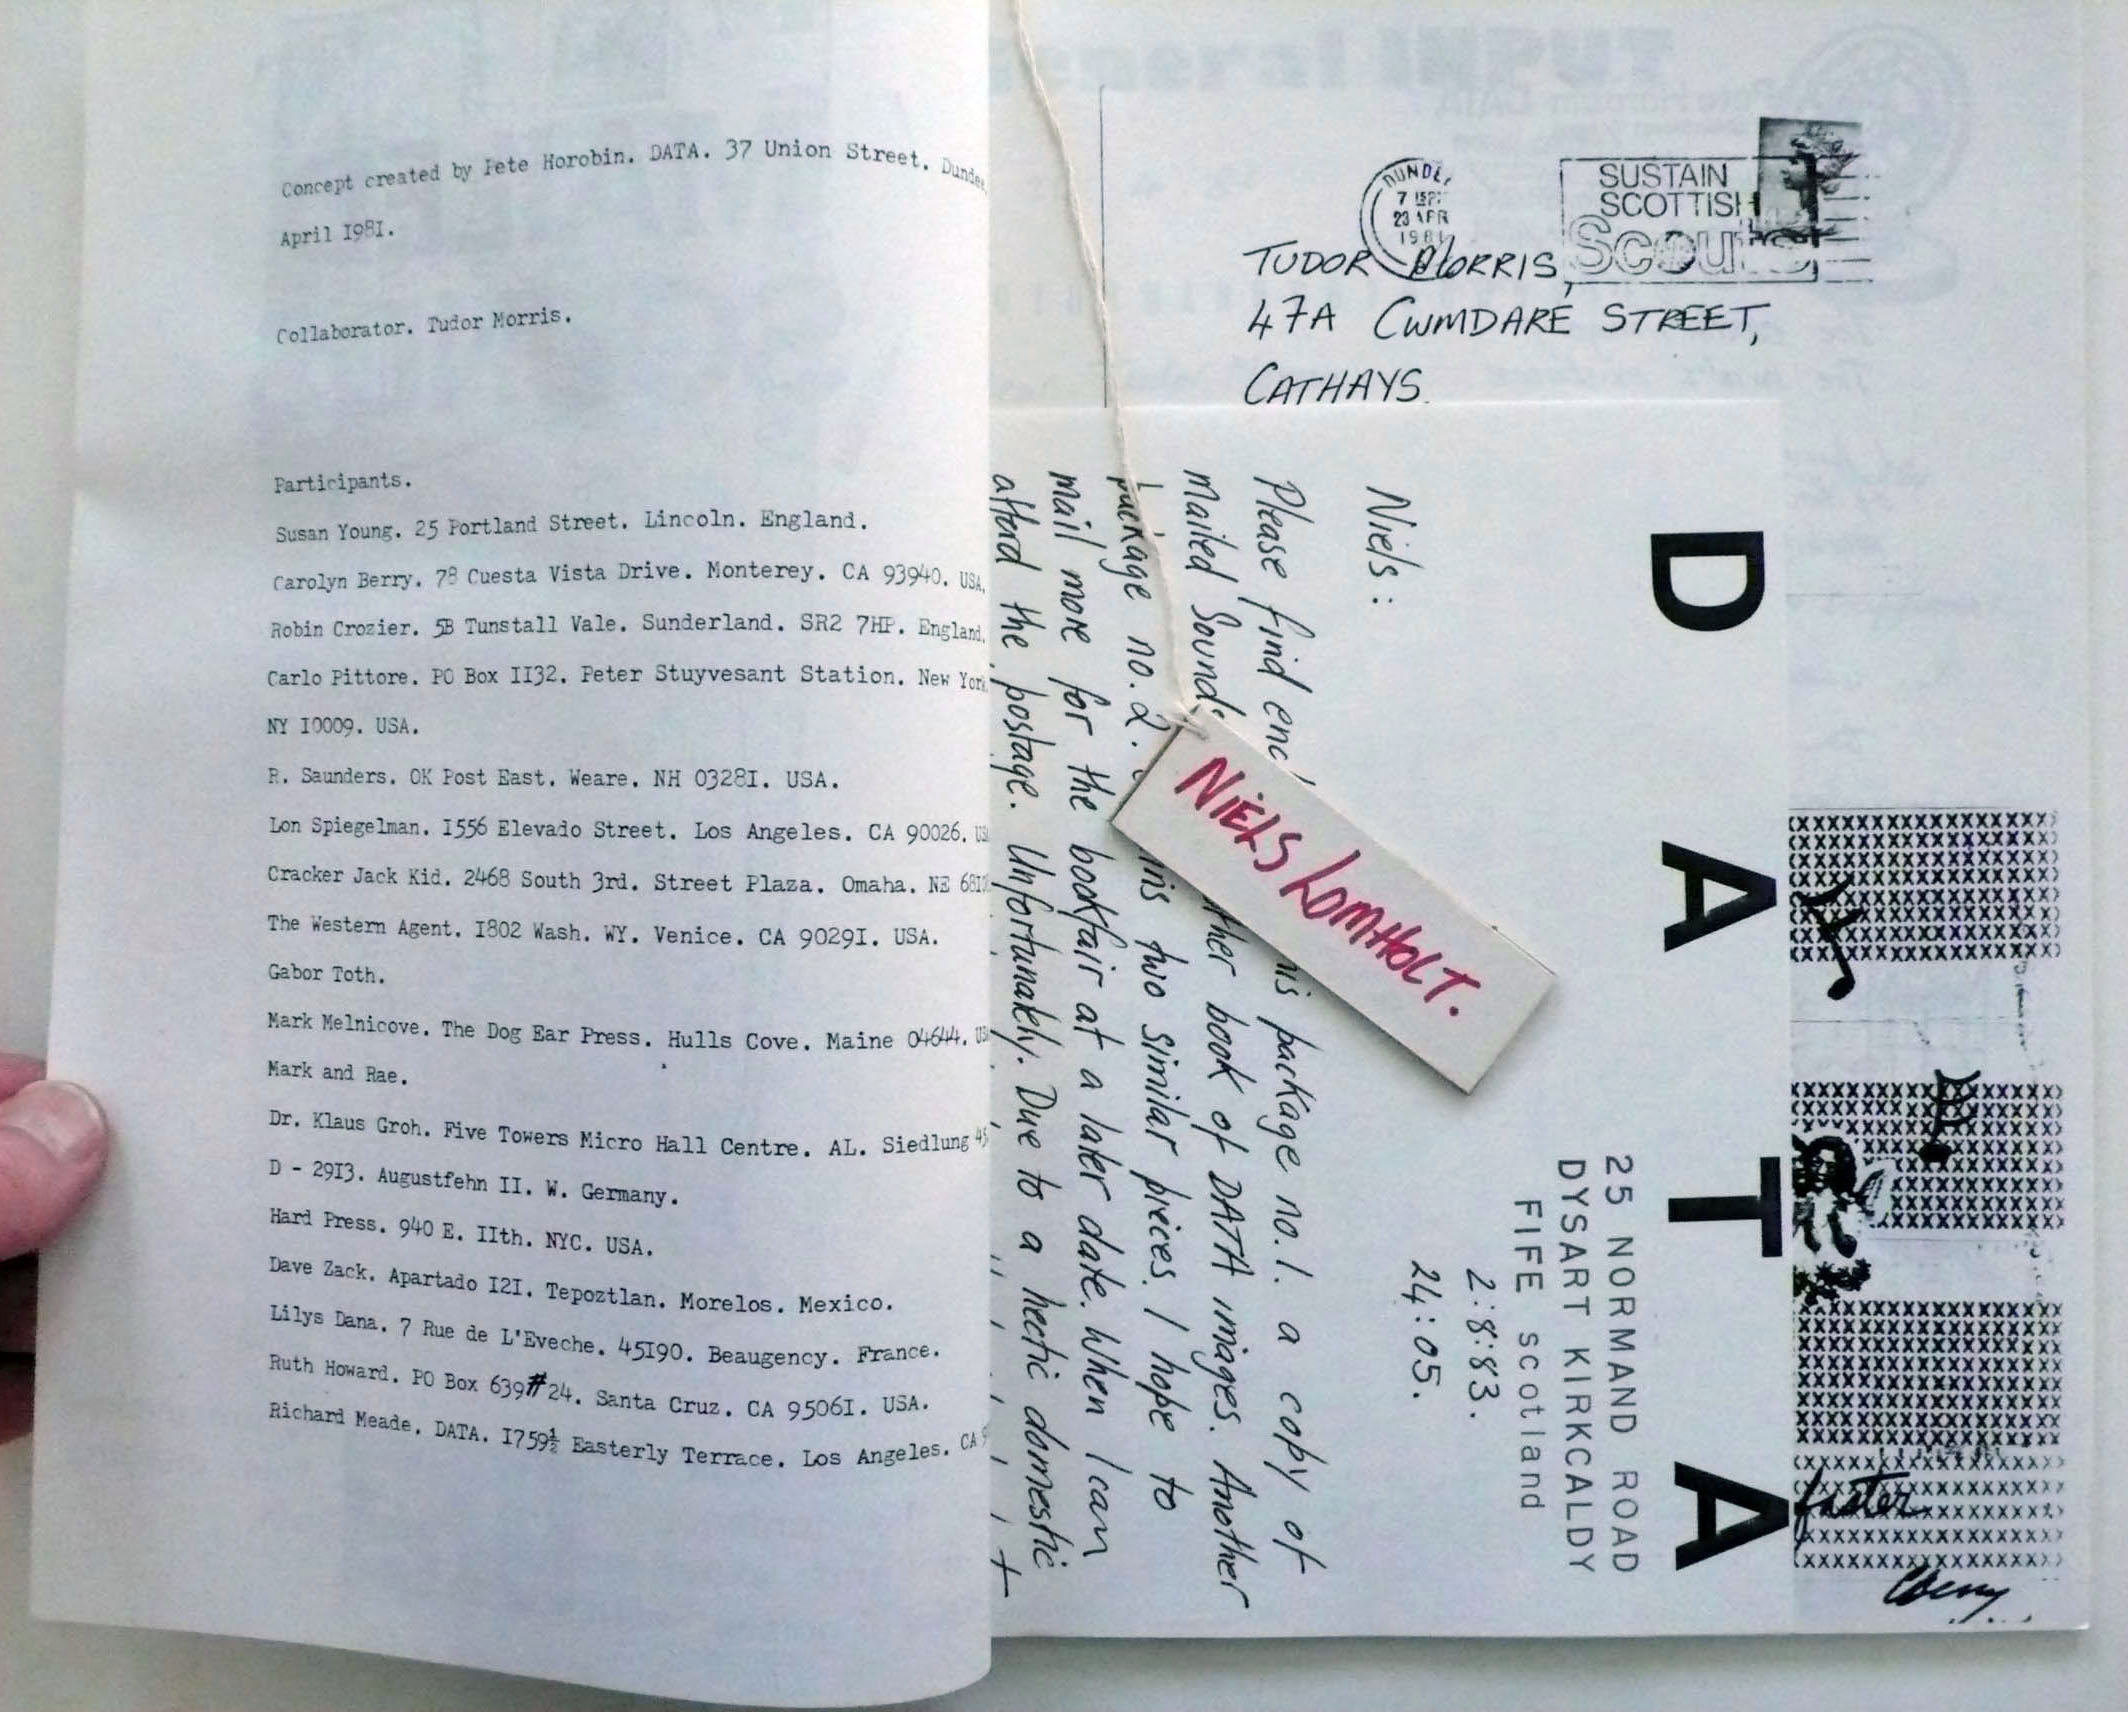 Concept created by Pete Horobin. DATA. 37 Union Street. Dundee,
April I98I.
Collaborator. Tudor Morris.
Participants.
Susan Young. 25 Portland Street. Lincoln. England.
Carolyn Berry. 78 Cuesta Vista Drive. Monterey. CA 93940. USA.
Robin Crozier. 5B Tunstall Vale. Sunderland. SR2 7HP. England.
Carlo Pittore. PO Box II32. Peter Stuyvesant Station. New York
NY I0009. USA.
R. Saunders. OK Post East. Weare. NH 0328I. USA.
Lon Spiegelman. I556 Elevado Street. Los Angeles. CA 90026.
Cracker Jack Kid. 2468 South 3rd. Street Plaza. Omaha. NE
The Western Agent. I802 Wash. WY. Venice. CA 9029I. USA.
Gabor Toth.
Mark Melnicove. The Dog Ear Press. Hulls Cove. Maine 04644.
Mark and Rae.
Dr. Klaus Groh. Five Towers Micro Hall Centre. AL. Siedlung
D - 29I3. Augustfehn II. W. Germany.
Hard Press. 940 E. IIth. NYC. USA.
Dave Zack. Apartado I2I. Tepoztlan. Morelos. Mexico.
Lilys Dana. 7 Rue de L'Eveche. 45I90. Beaugency. France.
Ruth Howard. PO Box 639#24. Santa Cruz. CA 9506I. USA.
Richard Meade. DATA. I759½ Easterly Terrace. Los Angeles. CA
DUNDEE
23 APR
1981
SUSTAIN
SCOTTISH
Scouts
TUDOR MORRIS,
47A CWMDARE STREET,
CATHAYS.
DATA
25 NORMAND ROAD
DYSART KIRKCALDY
FIFE scotland
2:8:83.
24:05.
Niels:
Please find package no.1. a copy of
Mailed Sound book of DATA images. Another
package no.2. two similar pieces. I hope to
mail more for the bookfair at a later date. When I can
afford the postage. Unfortunately. Due to a hectic domestic
NIELS LOMHOLT.
faster
Berry